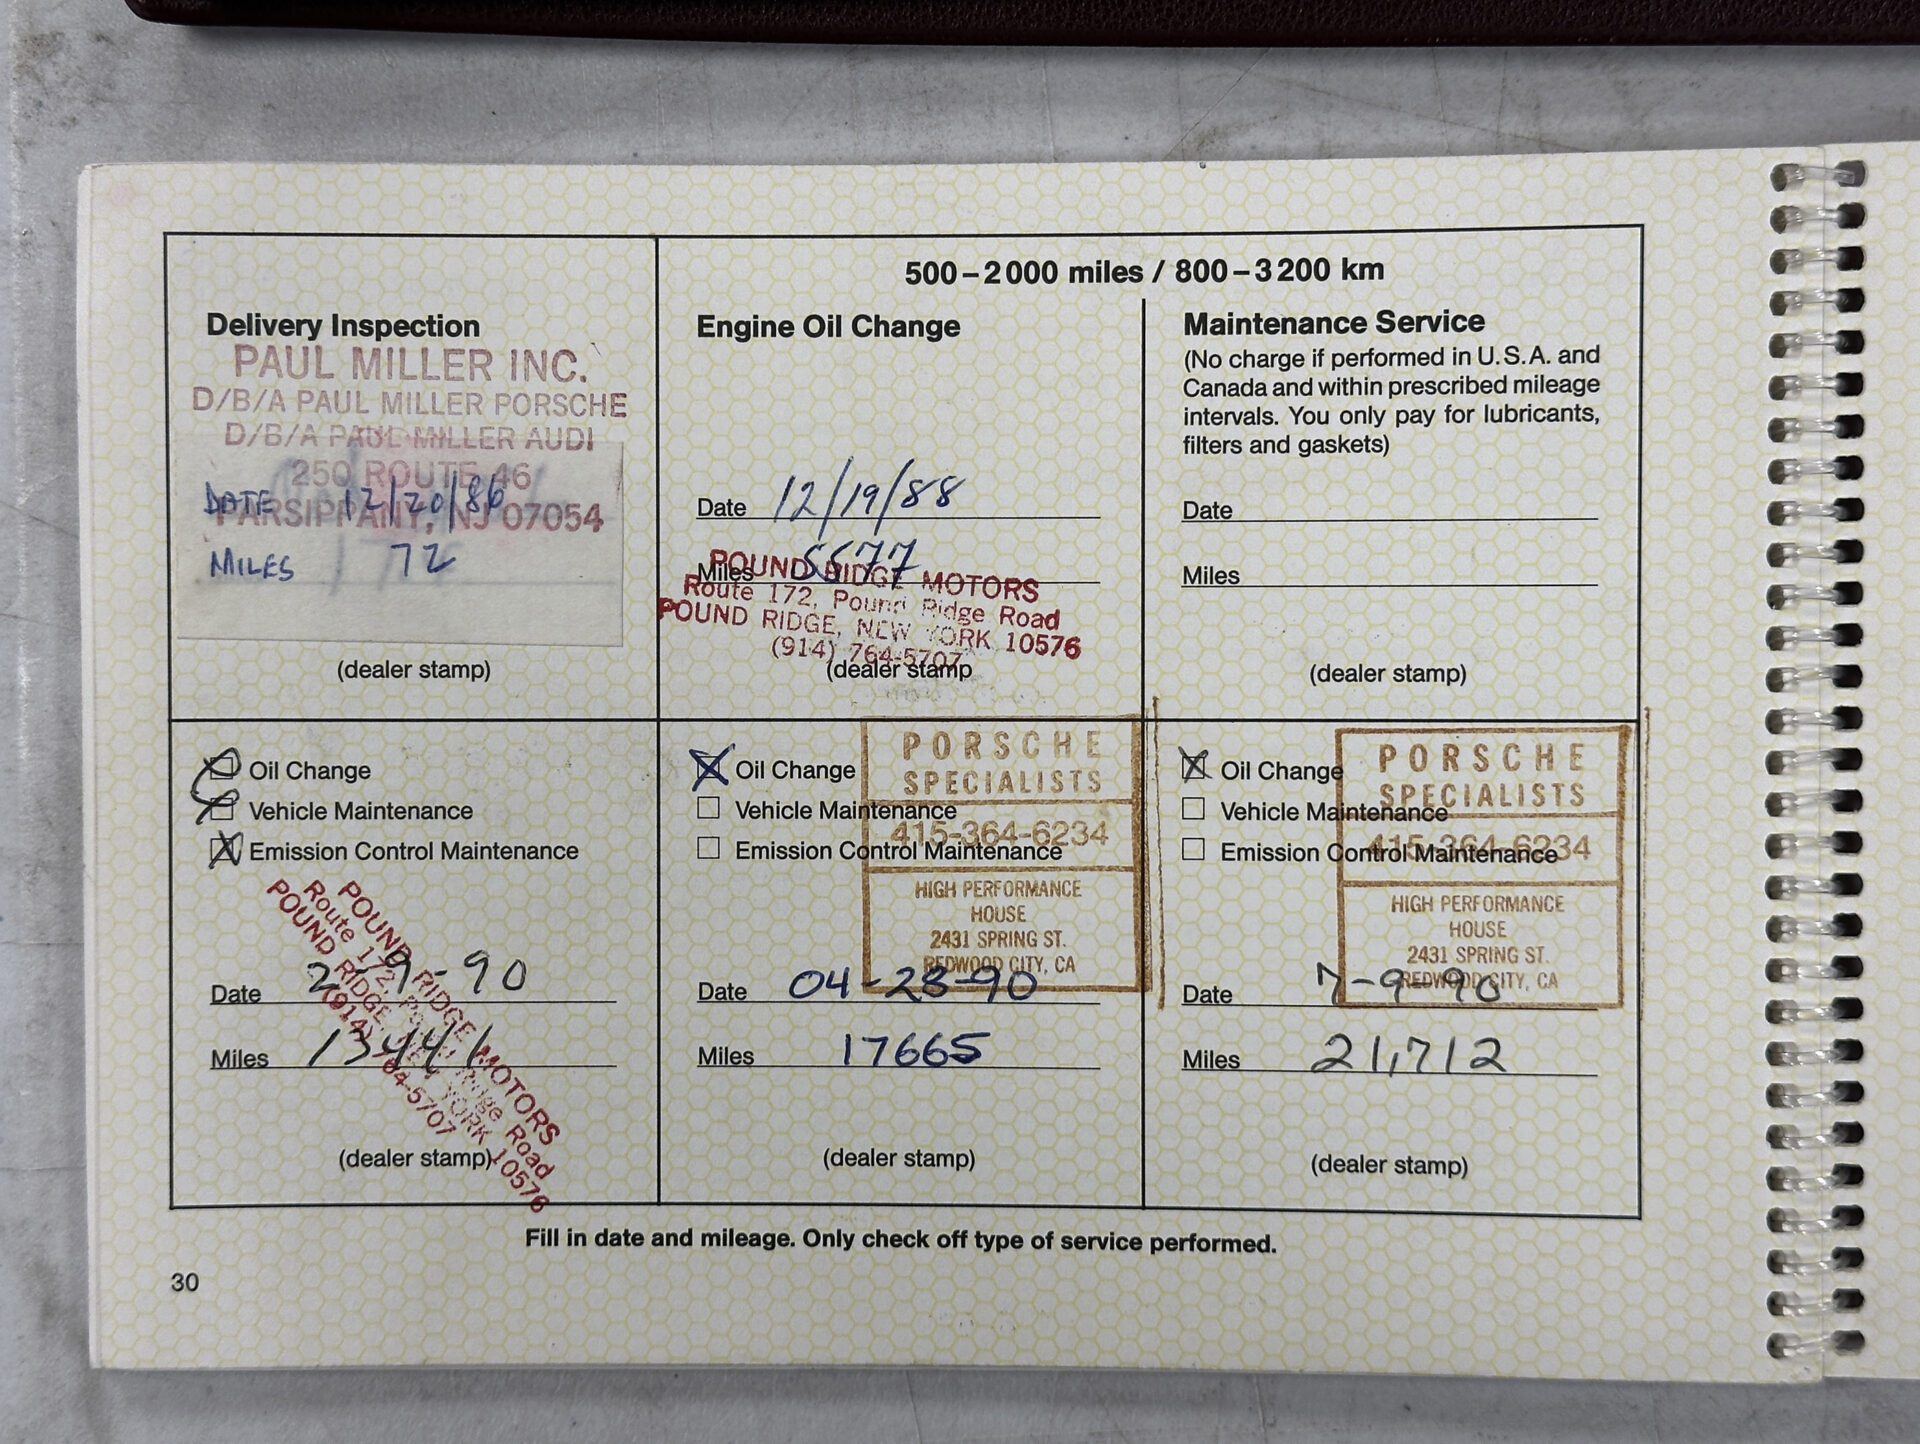 500–2000 miles / 800–3200 km
Delivery Inspection
PAUL MILLER INC.
D/B/A PAUL MILLER PORSCHE
D/B/A PAUL MILLER AUDI
250 ROUTE 46
PARSIPPANY, NJ 07054
DATE 12/20/86
MILES 72
(dealer stamp)
Engine Oil Change
Date 12/19/88
Miles 5577
POUND RIDGE MOTORS
Route 172, Pound Ridge Road
POUND RIDGE, NEW YORK 10576
(914) 764-5707
(dealer stamp
Maintenance Service
(No charge if performed in U.S.A. and
Canada and within prescribed mileage
intervals. You only pay for lubricants,
filters and gaskets)
Date
Miles
(dealer stamp)
Oil Change
Vehicle Maintenance
Emission Control Maintenance
POUND RIDGE MOTORS
Route 172, Pound Ridge Road
POUND RIDGE, NEW YORK 10576
(914) 764-5707
Date 2-9-90
Miles 13441
(dealer stamp)
Oil Change
Vehicle Maintenance
Emission Control Maintenance
PORSCHE
SPECIALISTS
415-364-6234
HIGH PERFORMANCE
HOUSE
2431 SPRING ST.
REDWOOD CITY, CA
Date 04-28-90
Miles 17665
(dealer stamp)
Oil Change
Vehicle Maintenance
Emission Control Maintenance
PORSCHE
SPECIALISTS
415-364-6234
HIGH PERFORMANCE
HOUSE
2431 SPRING ST.
REDWOOD CITY, CA
Date 7-9-90
Miles 21,712
(dealer stamp)
Fill in date and mileage. Only check off type of service performed.
30